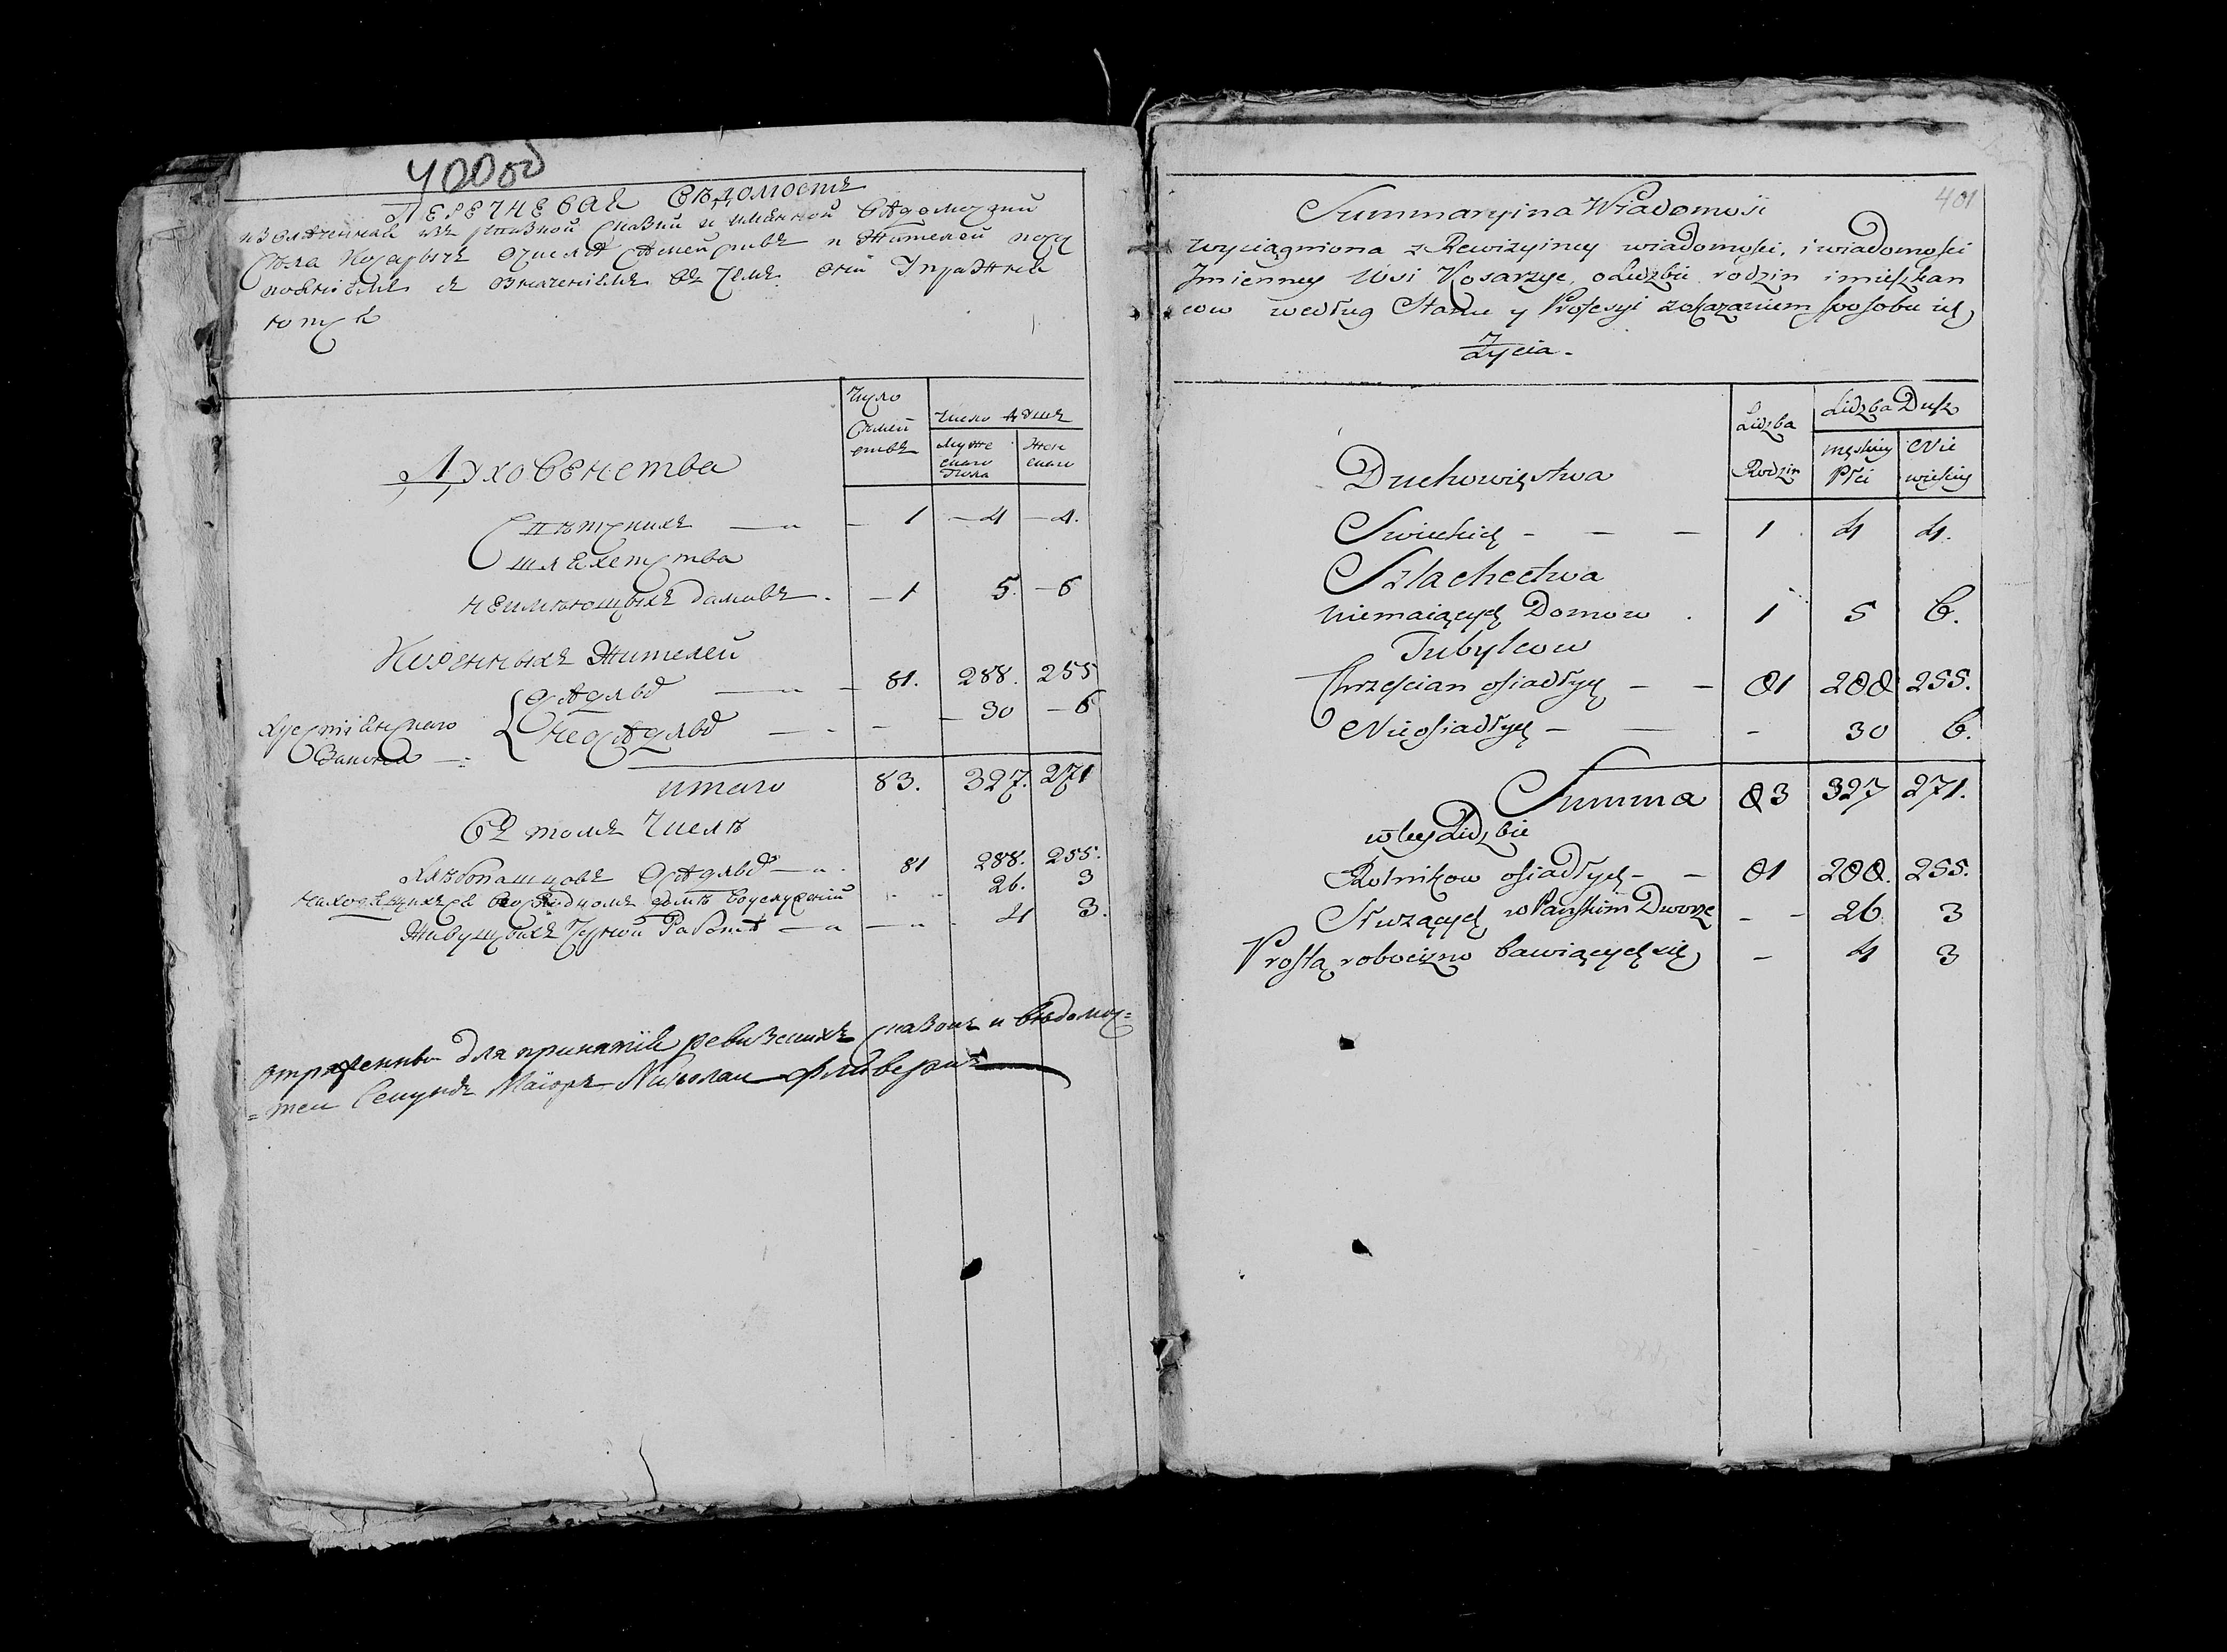 400 об
Перечневая Вѣдомость
извлеченная изъ ревизкой скаски и имянной вѣдомости
Села Косарычъ о числѣ семействъ и жителей
въ чемъ они упражня
ютъся
Число
Семей
ствъ
Число душъ
Мужескаго
пола
Женскаго
Духовенства
Свѣтскихъ — 1 — 4 — 4.
Шляхетства
неимѣющыхъ дамовъ — 1 5. — 6
Коренныхъ Жителей
Христіянскаго
Закона
осѣдлы — 81. 288. 255
неосѣдлы — — 30 — 6
итаго 83. 327. 271
Въ томъ Числѣ
Хлѣбопашцовъ осѣдлы — 81 288. 255.
находящихся въ домѣ въ услуженіи 26. 3
Живущыхъ Чорной Работѣ — 4 3.
Отряженны для принятія ревизскихъ сказокъ и вѣдомос=
=тей Секундъ Маіоръ Николаи
401
Summaryina Wiadomość
wyciągniona z Rewizyiney wiadomości, i wiadomości
Jmienney Wsi Kosarzyc, o Lidzbie rodzin i mieszkan
cow według Stanu y Profesyi z okazaniem sposobu ich
życia.
Lidzba
Rodzin
Lidzba Dusz
męskiey
Płci
Nie
wieskiey
Duchowięstwa
Swieckich - - - 1 4 4.
Szlachectwa
niemaiących Domow . 1 5 6.
Tubylcow
Chrzescian osiadłych - - 81 288 255.
Nieosiadłych - - - 30 6.
Summa 83 327 271.
w tey Lidzbie
Rolnikow osiadłych - - 81 288. 255.
Słuzących w Pańskim Dworze - - 26 3
Prostą robocizno bawiących się - 4 3